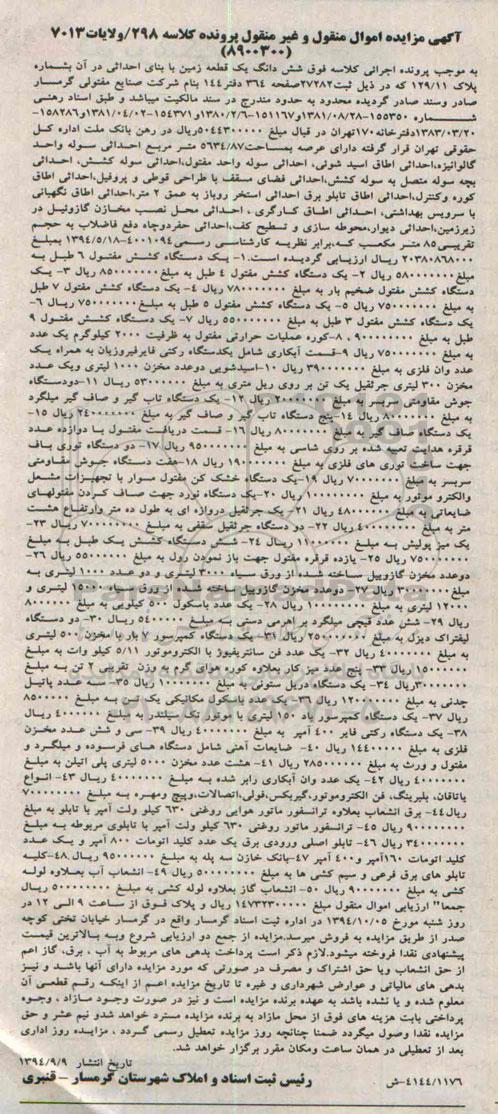 آگهی مزایده اموال منقول و غیر منقول پرونده کلاسه ۲۹۸/ولایات۷۰۱۳
(۸۹۰۰۳۰۰)
به موجب پرونده اجرائی کلاسه فوق شش دانگ یک قطعه زمین با بنای احداثی در آن بشماره
پلاک ۱۲۹/۱۱ که در ذیل ثبت۲۷۲۸۲صفحه ۳۶۴ دفتر۱۴۴ بنام شرکت صنایع مفتولی گرمسار
صادر وسند صادر گردیده محدود به حدود مندرج در سند مالکیت میباشد و طبق اسناد رهنی
شماره ۱۵۵۳۵۰-۱۳۸۱/۰۸/۲۸-۱۵۱۱۶۷و۱۳۸۰/۲/۶-۱۵۴۳۷۱و۱۳۸۱/۰۴/۰۲-۱۵۸۲۸۶
۱۳۸۳/۰۳/۲۰دفترخانه۱۷۰تهران در قبال مبلغ ۵۰۴۴۳۰۰۰۰۰ریال در رهن بانک ملت اداره کل
حقوقی تهران قرار گرفته دارای عرصه بمساحت۵۶۳۴/۸۷ متر مربع احداثی سوله واحد
گالوانیزه،احداثی اطاق اسید شوئی، احداثی سوله واحد مفتول،احداثی سوله کشش، احداثی
بچه سوله متصل به سوله کشش،احداثی فضای مسقف با طراحی قوطی و پروفیل،احداثی اطاق
کوره وکنترل،احداثی اطاق تابلو برق احداثی استخر روباز به عمق ۲ متر،احداثی اطاق نگهبانی
با سرویس بهداشتی، احداثی اطاق کارگری ، احداثی محل نصب مخازن گازوئیل در
زیرزمین،احداثی دیوار،محوطه سازی و تسطیح کف،احداثی حفردوچاه دفع فاضلاب به حجم
تقریبی۸۵ متر مکعب که،برابر نظریه کارشناسی رسمی۴۰۰۱۰۹۴-۱۳۹۴/۵/۱۸ بمبلغ
۲۰۳۸۰۸۶۸۰۰۰ ریال ارزیابی گردیده است.۱- یک دستگاه کشش مفتول ۶ طبل به
مبلغ۵۸۰۰۰۰۰۰۰ ریال ۲- یک دستگاه کشش مفتول ۴ طبل به مبلغ۸۵۰۰۰۰۰۰۰ ریال ۳- یک
دستگاه کشش مفتول ضخیم بار به مبلغ ۷۸۰۰۰۰۰۰۰ ریال ۴- یک دستگاه کشش مفتول ۷ طبل
به مبلغ ۷۵۰۰۰۰۰۰۰ ریال ۵- یک دستگاه کشش مفتول ۵ طبل به مبلغ۷۵۰۰۰۰۰۰۰ ریال ۶-
یک دستگاه کشش مفتول ۳ طبل به مبلغ ۵۵۰۰۰۰۰۰۰ ریال ۷- یک دستگاه کشش مفتول ۹
طبل به مبلغ ۹۰۰۰۰۰۰۰۰ ۸-کوره عملیات حرارتی مفتول به ظرفیت ۲۰۰۰ کیلوگرم یک عدد
به مبلغ ۷۵۰۰۰۰۰۰۰ ریال ۹-قسمت آبکاری شامل یکدستگاه رکتی فایرفیروزیان به همراه یک
عدد وان فلزی به مبلغ ۳۹۰۰۰۰۰۰۰ ریال ۱۰-اسیدشویی دوعدد مخزن ۱۰۰۰ لیتری ویک عدد
مخزن ۳۰۰ لیتری جرثقیل یک تن بر روی ریل متری به مبلغ ۵۳۰۰۰۰۰۰ ریال ۱۱-دودستگاه
جوش مقاومتی سربسر به مبلغ ۲۰۰۰۰۰۰۰ ریال ۱۲- یک دستگاه تاب گیر و صاف گیر میلگرد
به مبلغ ۸۰۰۰۰۰۰۰ ریال ۱۴-پنج دستگاه تاب گیر و صاف گیر به مبلغ ۲۴۰۰۰۰۰۰۰ ریال ۱۵-
یک دستگاه صاف گیر به مبلغ ۸۰۰۰۰۰۰۰ ریال ۱۶- قسمت دریافت مفتول با دوازده عدد
قرقره هدایت تعبیه شده بر روی شاسی به مبلغ ۹۵۰۰۰۰۰۰ ریال ۱۷- دو دستگاه توری باف
جهت ساخت توری های فلزی به مبلغ ۱۹۰۰۰۰۰۰۰ ریال ۱۸-هفت دستگاه جوش مقاومتی
سربسر به مبلغ ۷۰۰۰۰۰۰۰ ریال ۱۹-یک دستگاه خشک کن مفتول مسوار با تجهیزات مشعل
والکترو موتور به مبلغ ۱۰۰۰۰۰۰۰۰ ریال ۲۰-یک دستگاه نورد جهت صاف کردن مفتولهای
ضایعاتی به مبلغ ۴۸۰۰۰۰۰۰۰ ریال ۲۱- یک جرثقیل دروازه ای به طول ده متر وارتفاع هشت
متر به مبلغ ۴۰۰۰۰۰۰۰۰ ریال ۲۲- دو دستگاه جرثقیل سقفی به مبلغ ۷۰۰۰۰۰۰۰۰ ریال ۲۳-
یک میز پولیش به مبلغ ۱۱۰۰۰۰۰۰ ریال ۲۴- شش دستگاه کشش یک طبل به مبلغ
۷۵۰۰۰۰۰۰۰ ریال ۲۵- یازده قرقره مفتول جهت باز نمودن رول به مبلغ ۵۵۰۰۰۰۰۰ ریال ۲۶-
دوعدد مخزن گازوییل ساخته شده از ورق سیاه ۳۰۰۰ لیتری و دو عدد ۱۰۰۰ لیتری به
مبلغ۳۰۰۰۰۰۰۰ ریال ۲۷- دوعدد مخزن گازوییل ساخته شده از ورق سیاه ۱۵۰۰۰ لیتری و
۱۲۰۰۰ لیتری به مبلغ ۱۰۰۰۰۰۰۰۰ ریال ۲۸- یک عدد باسکول ۵۰۰ کیلویی به مبلغ ۸۰۰۰۰۰۰
ریال ۲۹- شش عدد قیچی میلگرد بر اهرمی دستی به مبلغ ۵۴۰۰۰۰۰۰ ریال ۳۰- دو دستگاه
لیفتراک دیزل به مبلغ ۲۵۰۰۰۰۰۰۰ ریال ۳۱- یک دستگاه کمپرسور ۷ بار با مخزن ۵۰۰ لیتری
به مبلغ ۴۰۰۰۰۰۰۰ ریال ۳۲- یک عدد فن سانتریفیوژ با الکتروموتور ۵/۱۱ کیلو وات به مبلغ
۱۵۰۰۰۰۰۰ ریال ۳۳- پنج عدد میز کار بعلاوه کوره هوای گرم به وزن تقریبی ۲ تن به مبلغ
۳۰۰۰۰۰۰۰ریال ۳۴- یک دستگاه دریل ستونی به مبلغ ۱۰۰۰۰۰۰۰ ریال ۳۵- سه عدد پاتیل
چدنی به مبلغ ۱۲۰۰۰۰۰۰۰ ریال ۳۶- یک عدد باسکول مکانیکی یک تن به مبلغ ۸۵۰۰۰۰۰
ریال ۳۷- یک دستگاه کمپرسور باد ۱۵۰ لیتری با موتور تک سیلندر به مبلغ ۴۰۰۰۰۰۰ ریال
۳۸- یک دستگاه رکتی فایر ۴۰۰ آمپر به مبلغ ۴۰۰۰۰۰۰۰ ریال ۳۹- سی و شش عدد مخزن
فلزی به مبلغ ۱۴۴۰۰۰۰۰۰ ریال ۴۰- ضایعات آهنی شامل دستگاه های فرسوده و میلگرد و
مفتول و ورق به مبلغ ۲۸۵۰۰۰۰۰۰ ریال ۴۱- هشت عدد مخزن ۵۰۰۰ لیتری پلی اتیلن به مبلغ
۴۰۰۰۰۰۰۰ ریال ۴۲- یک عدد وان آبکاری رابر شده به مبلغ ۴۰۰۰۰۰۰۰ ریال ۴۳- انواع
یاتاقان، بلبرینگ، فن الکتروموتور،گیربکس،فولی،اتصالات،وپیچ ومهره به مبلغ ۷۰۰۰۰۰۰۰
ریال۴۴- برق انشعاب بعلاوه ترانسفور ماتور هوایی روغنی ۶۳۰ کیلو ولت آمپر با تابلو به مبلغ
۹۰۰۰۰۰۰۰۰ ریال ۴۵- ترانسفور ماتور روغنی ۶۳۰ کیلو ولت آمپر با تابلوی مربوطه به مبلغ
۳۴۰۰۰۰۰۰۰ ریال ۴۶- تابلو اصلی ورودی برق یک عدد کلید اتومات ۸۰۰ آمپر و یک عدد
کلید اتومات ۱۶۰آمپر و۴۰۰ آمپر ۴۷-بانک خازن سه پله به مبلغ ۹۵۰۰۰۰۰۰ ریال.۴۸-کلیه
تابلو های برق فرعی و سیم کشی ها به مبلغ ۵۰۰۰۰۰۰۰۰ ریال ۴۹- انشعاب آب بعلاوه لوله
کشی به مبلغ ۹۰۰۰۰۰۰۰ ریال ۵۰- انشعاب گاز بعلاوه لوله کشی به مبلغ ۵۰۰۰۰۰۰۰۰ ریال
جمعا" ارزیابی اموال منقول مبلغ ۱۴۷۳۲۳۰۰۰۰۰ ریال و پلاک فوق از ساعت ۹ الی ۱۲ در
روز شنبه مورخ ۱۳۹۴/۱۰/۰۵ در اداره ثبت اسناد گرمسار واقع در گرمسار خیابان تختی کوچه
صدر از طریق مزایده به فروش میرسد.مزایده از جمع دو ارزیابی شروع وبه بالاترین قیمت
پیشنهادی نقدا فروخته میشود.لازم ذکر است پرداخت بدهی های مربوط به آب ، برق، گاز اعم
از حق انشعاب ویا حق اشتراک و مصرف در صورتی که مورد مزایده دارای آنها باشد و نیز
بدهی های مالیاتی و عوارض شهرداری و غیره تا تاریخ مزایده اعم از اینکه رقم قطعی آن
معلوم شده و یا نشده باشد به عهده برنده مزایده است و نیز در صورت وجود مازاد ، وجوه
پرداختی بابت هزینه های فوق از محل مازاد به برنده مزایده مسترد خواهد شدو نیم عشر و حق
مزایده نقدا وصول میگردد ضمنا چنانچه روز مزایده تعطیل رسمی گردد ، مزایده روز اداری
بعد از تعطیلی در همان ساعت ومکان مقرر برگزار خواهد شد.
تاریخ انتشار ۱۳۹۴/۹/۹
۴۱۴۴/۱۱۷۶-ش رئیس ثبت اسناد و املاک شهرستان گرمسار – قنبری